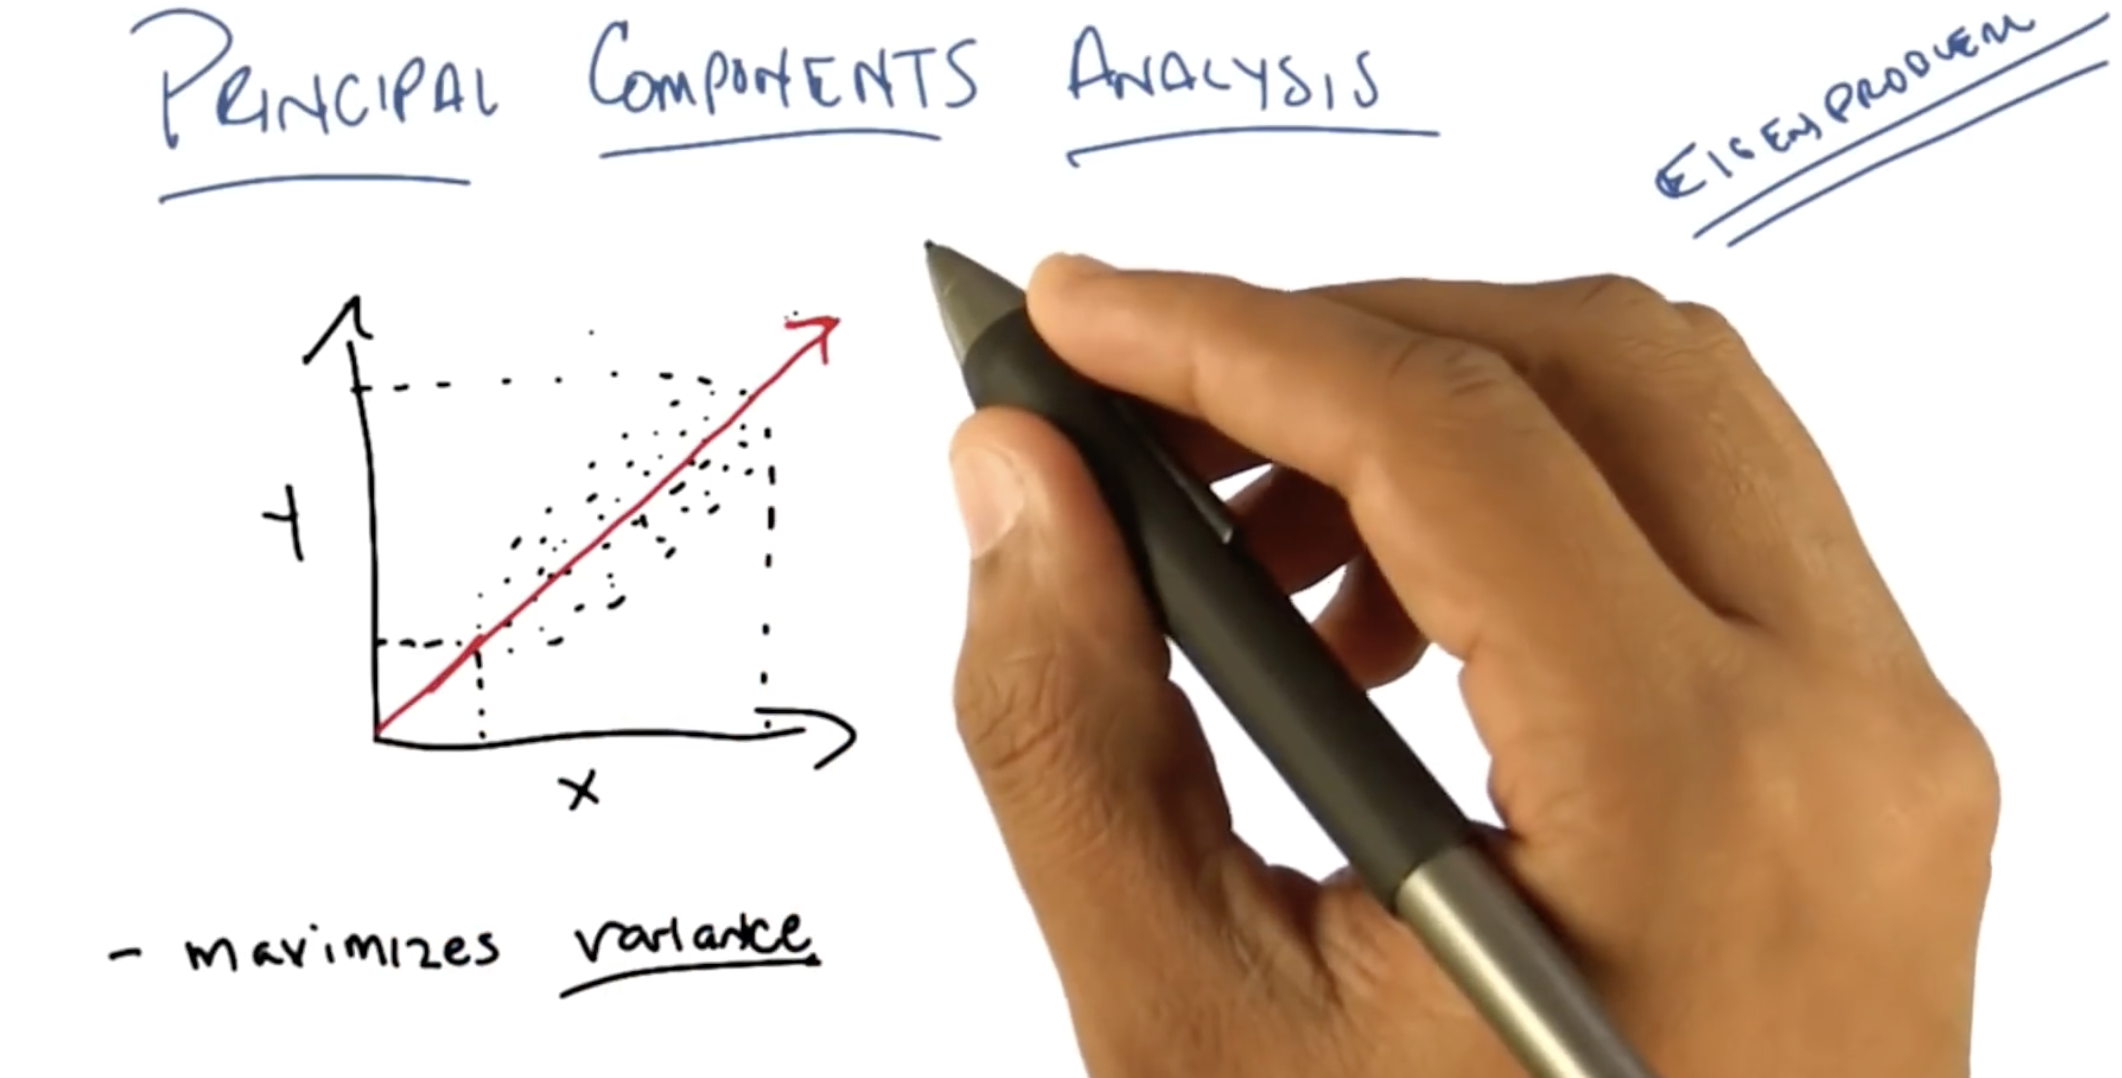 PRINCIPAL COMPONENTS ANALYSIS
EIGENPROBLEM
Y
X
- maximizes variance